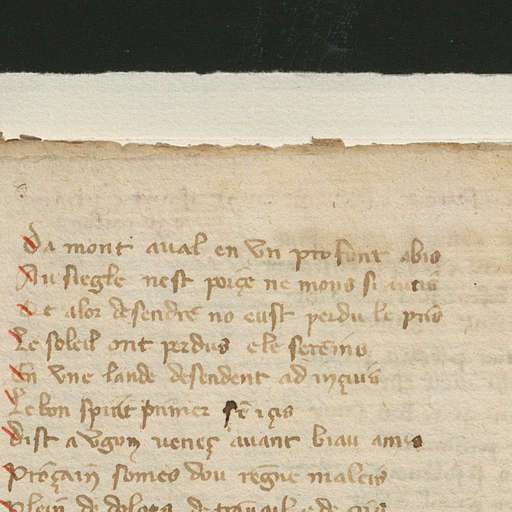 Da mont aval en un profont abis
Au siegle nest porçe ne mons si autis
De alor desendre no eust perdu le pris
Le soleil ont perdus e le sereins
En une lande desendent ad inçuis
Le bon spirit primer
dist a ugon veneç avant biau amis
Proçain somes dou regne maleis
Plein de dolors de travail e de